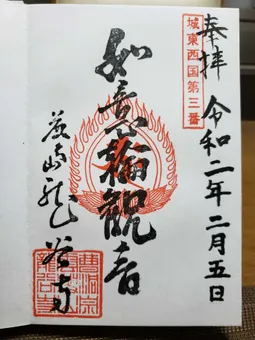 奉拝
城東西国第三番
令和二年二月五日
如意輪観音
龍谷寺